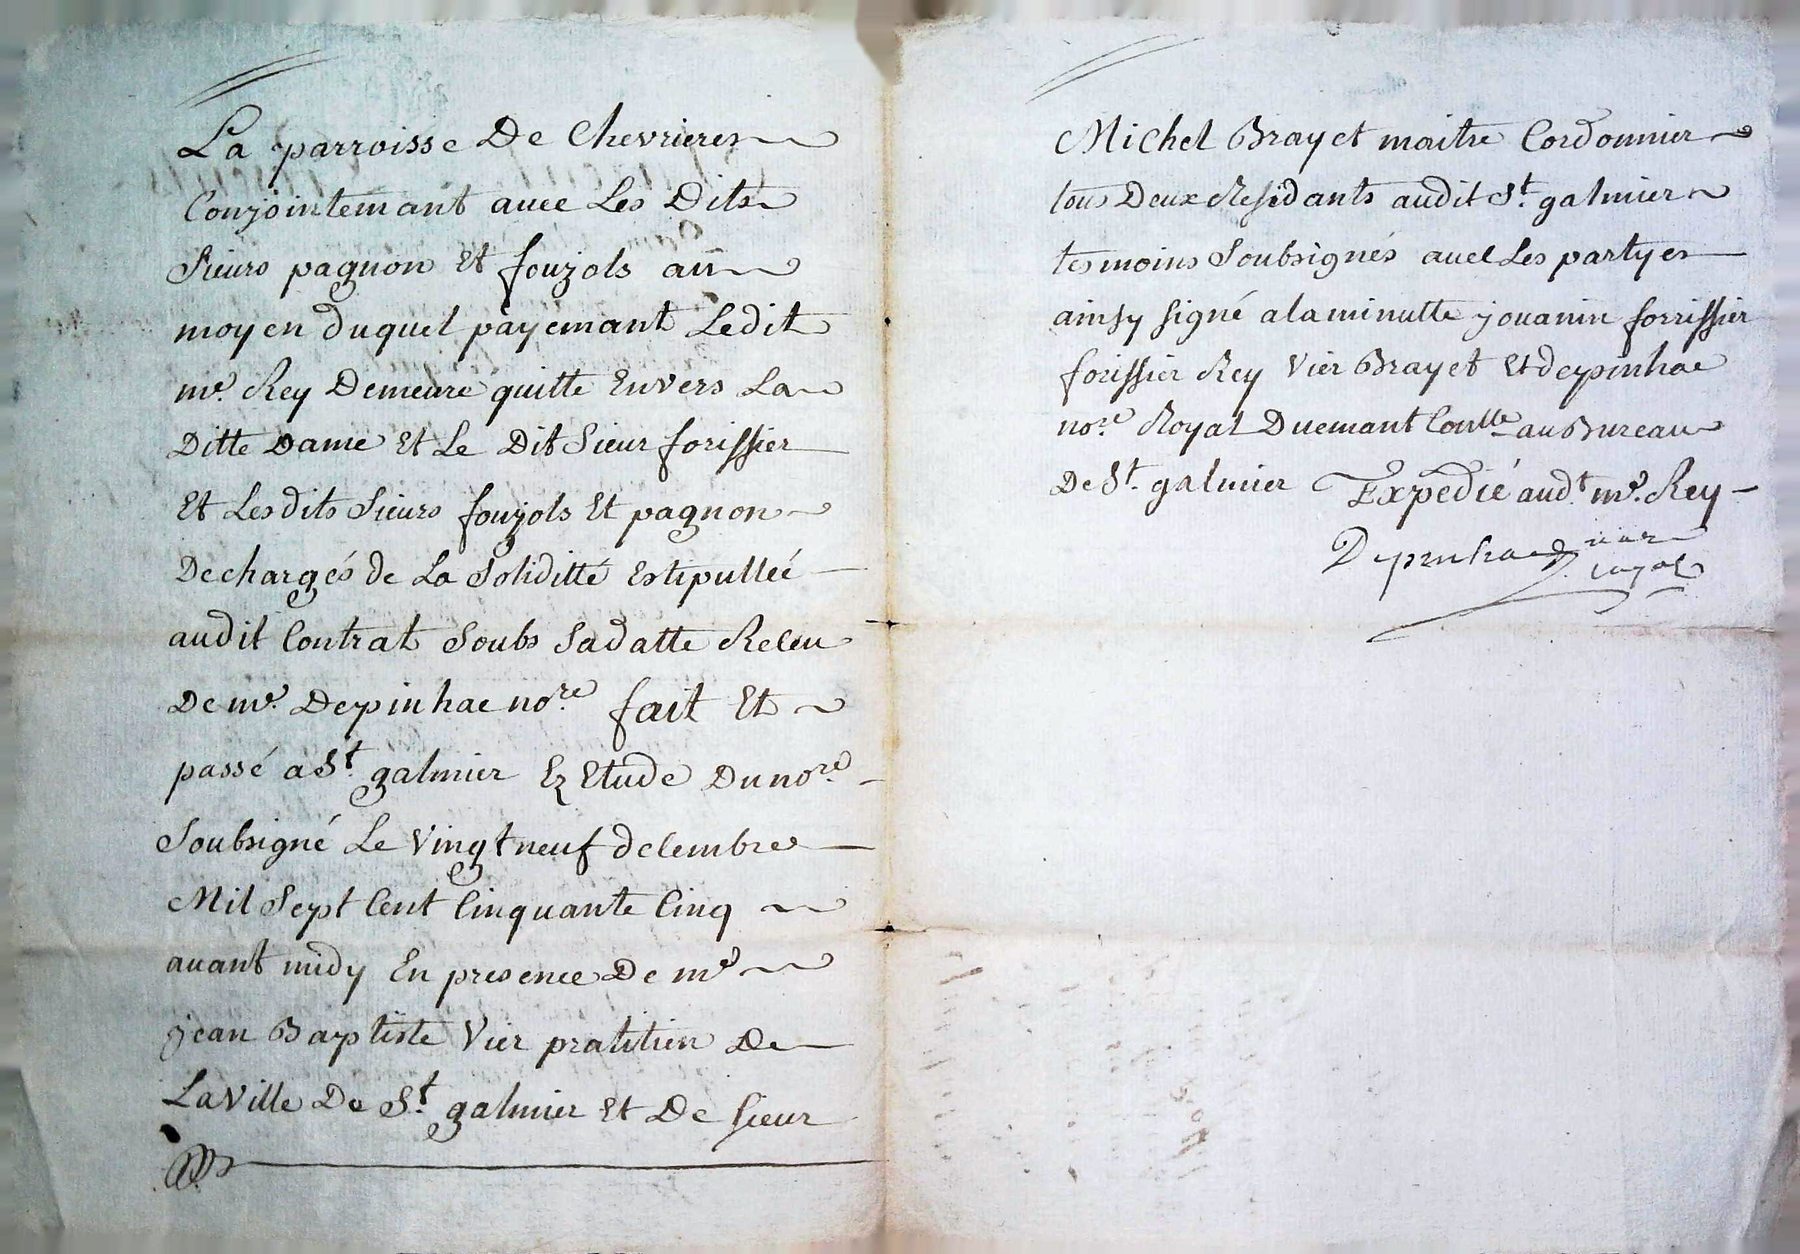 La parroisse De Chevrieres
Conjointemant avec Les Dits
Sieurs pagnon Et foujols au
moyen duquel payemant Ledit
me. Rey Demeure quitte Envers La
Ditte Dame Et Le Dit Sieur forissier
Et Lesdits Sieurs foujols Et pagnon
Dechargés de La Soliditté Estipullée
audit Contrat Soubs Sadatte Receu
De me. Depinhac nore. fait Et
passé a St. galmier Ez Etude Du nore.
Soubsigné Le Vingt neuf decembre
Mil Sept Cent Cinquante Cinq
avant midy En presence De me
jean Baptiste Vier pratitien De
La Ville De St. galmier Et De Sieur
Michel Brayet maitre Cordonnier
tous Deux Residants audit St. galmier
tesmoins Soubsignés avec Les partyes
ainsy signé a la minutte jouanin forrissier
forissier Rey Vier Brayet Et depinhac
nore. Royal Duemant Conllé au Bureau
De St. galmier Expedié audt. me. Rey
Depinhac nore
royal